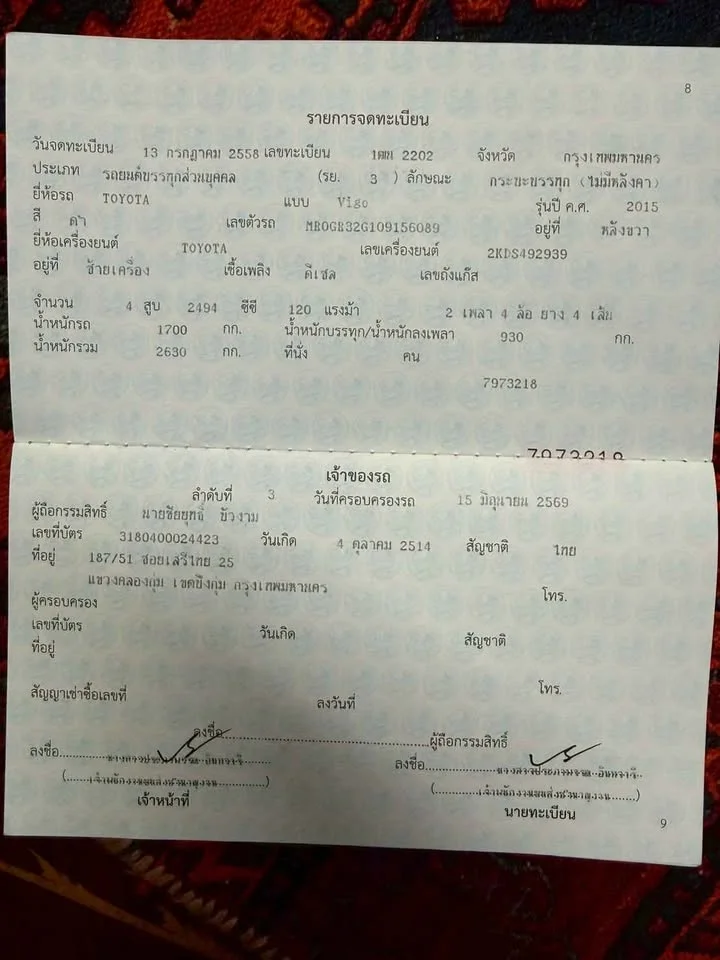 8
รายการจดทะเบียน
วันจดทะเบียน 13 กรกฎาคม 2558 เลขทะเบียน 1ฒน 2202 จังหวัด กรุงเทพมหานคร
ประเภท รถยนต์บรรทุกส่วนบุคคล (รย. 3 ) ลักษณะ กระบะบรรทุก (ไม่มีหลังคา)
ยี่ห้อรถ TOYOTA แบบ Vigo รุ่นปี ค.ศ. 2015
สี ดำ เลขตัวรถ MR0GR32G109156089 อยู่ที่ หลังขวา
ยี่ห้อเครื่องยนต์ TOYOTA เลขเครื่องยนต์ 2KDS492939
อยู่ที่ ซ้ายเครื่อง เชื้อเพลิง ดีเซล เลขถังแก๊ส
จำนวน 4 สูบ 2494 ซีซี 120 แรงม้า 2 เพลา 4 ล้อ ยาง 4 เส้น
น้ำหนักรถ 1700 กก. น้ำหนักบรรทุก/น้ำหนักลงเพลา 930 กก.
น้ำหนักรวม 2630 กก. ที่นั่ง คน
7973218
7973218
เจ้าของรถ
ลำดับที่ 3 วันที่ครอบครองรถ 15 มิถุนายน 2569
ผู้ถือกรรมสิทธิ์ นายชัยยุทธ์ บัวงาม
เลขที่บัตร 3180400024423 วันเกิด 4 ตุลาคม 2514 สัญชาติ ไทย
ที่อยู่ 187/51 ซอยเสรีไทย 25
แขวงคลองกุ่ม เขตบึงกุ่ม กรุงเทพมหานคร
ผู้ครอบครอง โทร.
เลขที่บัตร วันเกิด สัญชาติ
ที่อยู่
สัญญาเช่าซื้อเลขที่ ลงวันที่ โทร.
ลงชื่อ ผู้ถือกรรมสิทธิ์
ลงชื่อ ลงชื่อ
เจ้าหน้าที่ นายทะเบียน
9